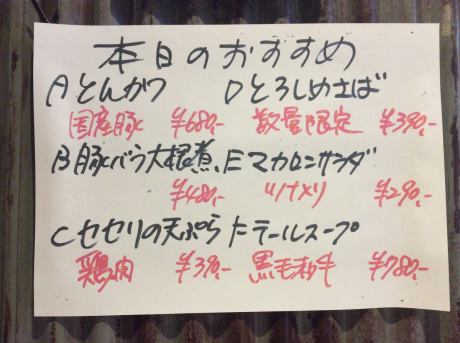 本日のおすすめ
Aとんかつ Dとろしめさば
国産豚 ¥680,- 数量限定 ¥390,-
B豚バラ大根煮、Eマカロニサラダ
¥480,- ¥290,-
Cセセリの天ぷら Fテールスープ
鶏肉 ¥390,- 黒毛和牛 ¥780,-